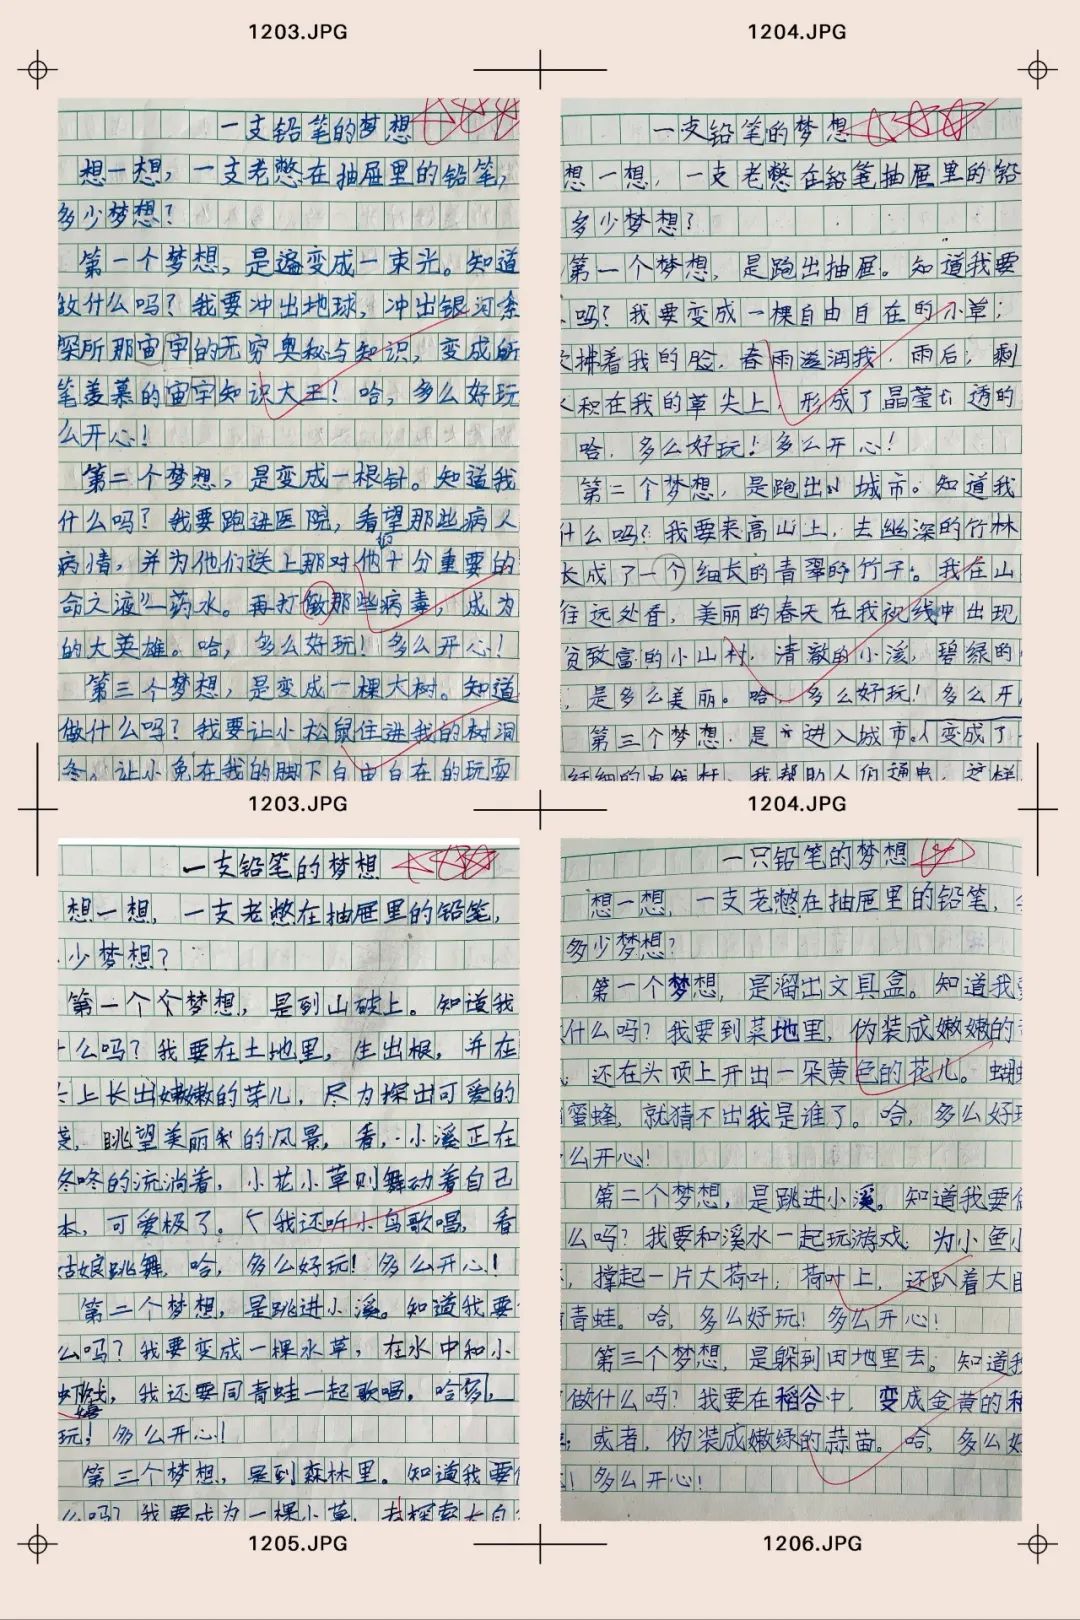 1203.JPG
1204.JPG
一支铅笔的梦想
想一想，一支老憋在抽屉里的铅笔，
多少梦想？
第一个梦想，是变成一束光。知道
做什么吗？我要冲出地球，冲出银河系
探所那宙宇的无穷奥秘与知识，变成所
笔羡慕的宙宇知识大王！哈，多么好玩
么开心！
第二个梦想，是变成一根针。知道我
什么吗？我要跑进医院，看望那些病人
病情，并为他们送上那对他十分重要的
命之液”—药水。再打做那些病毒，成为
的大英雄。哈，多么好玩！多么开心！
第三个梦想，是变成一棵大树。知道
做什么吗？我要让小松鼠住进我的树洞
冬。让小兔在我的脚下自由自在的玩耍
一支铅笔的梦想
想一想，一支老憋在铅笔抽屉里的铅
多少梦想？
第一个梦想，是跑出抽屉。知道我要
吗？我要变成一棵自由自在的小草；
拂着我的脸，春雨滋润我，雨后，剩
积在我的草尖上，形成了晶莹 透的
哈，多么好玩！多么开心！
第二个梦想，是跑出 城市。知道我
什么吗？我要来高山上，去幽深的竹林
长成了一个细长的青翠的竹子。我在山
往远处看，美丽的春天在我视线中出现
贫致富的小山村，清澈的小溪，碧绿的
，是多么美丽。哈，多么好玩！多么开
第三个梦想，是 进入城市。变成了
纤细的电线杆，我帮助人们通电，这样
1203.JPG
1204.JPG
一支铅笔的梦想
想一想，一支老憋在抽屉里的铅笔，
少梦想？
第一个个梦想，是到山破上。知道我
什么吗？我要在土地里，生出根，并在
头上长出嫩嫩的芽儿，尽力探出可爱的
，眺望美丽 的风景，看，小溪正在
咚咚的流淌着，小花小草则舞动着自己
，可爱极了。我还听小鸟歌唱，看
姑娘跳舞，哈，多么好玩！多么开心！
第二个梦想，是跳进小溪。知道我要
么吗？我要变成一棵水草，在水中和小
，我还要同青蛙一起歌唱。哈多
玩！多么开心！
第三个梦想，是到森林里。知道我要
么吗？我要成为一棵小草，去探索大自
一只铅笔的梦想
想一想，一支老憋在抽屉里的铅笔，
多少梦想？
第一个梦想，是溜出文具盒。知道我要
什么吗？我要到菜地里，伪装成嫩嫩的
，还在头顶上开出一朵黄色的花儿。蝴
蜜蜂，就猜不出我是谁了。哈，多么好玩
么开心！
第二个梦想，是跳进小溪。知道我要做
么吗？我要和溪水一起玩游戏，为小鱼小
，撑起一片大荷叶；荷叶上，还趴着大
青蛙。哈，多么好玩！多么开心！
第三个梦想，是躲到田地里去。知道我
做什么吗？我要在稻谷中，变成金黄的
；或者，伪装成嫩绿的蒜苗。哈，多么好
！多么开心！
1205.JPG
1206.JPG